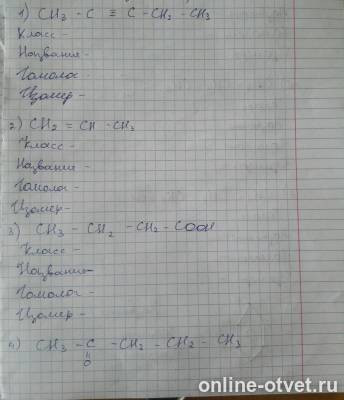 1) CH₃ - C ≡ C - CH₂ - CH₃
Класс -
Название -
Гомолог -
Изомер -
2) CH₂ = CH - CH₃
Класс -
Название -
Гомолог -
Изомер -
3) CH₃ - CH₂ - CH₂ - COOH
Класс -
Название -
Гомолог -
Изомер -
4) CH₃ - C - CH₂ - CH₂ - CH₃
॥
O
online-otvet.ru